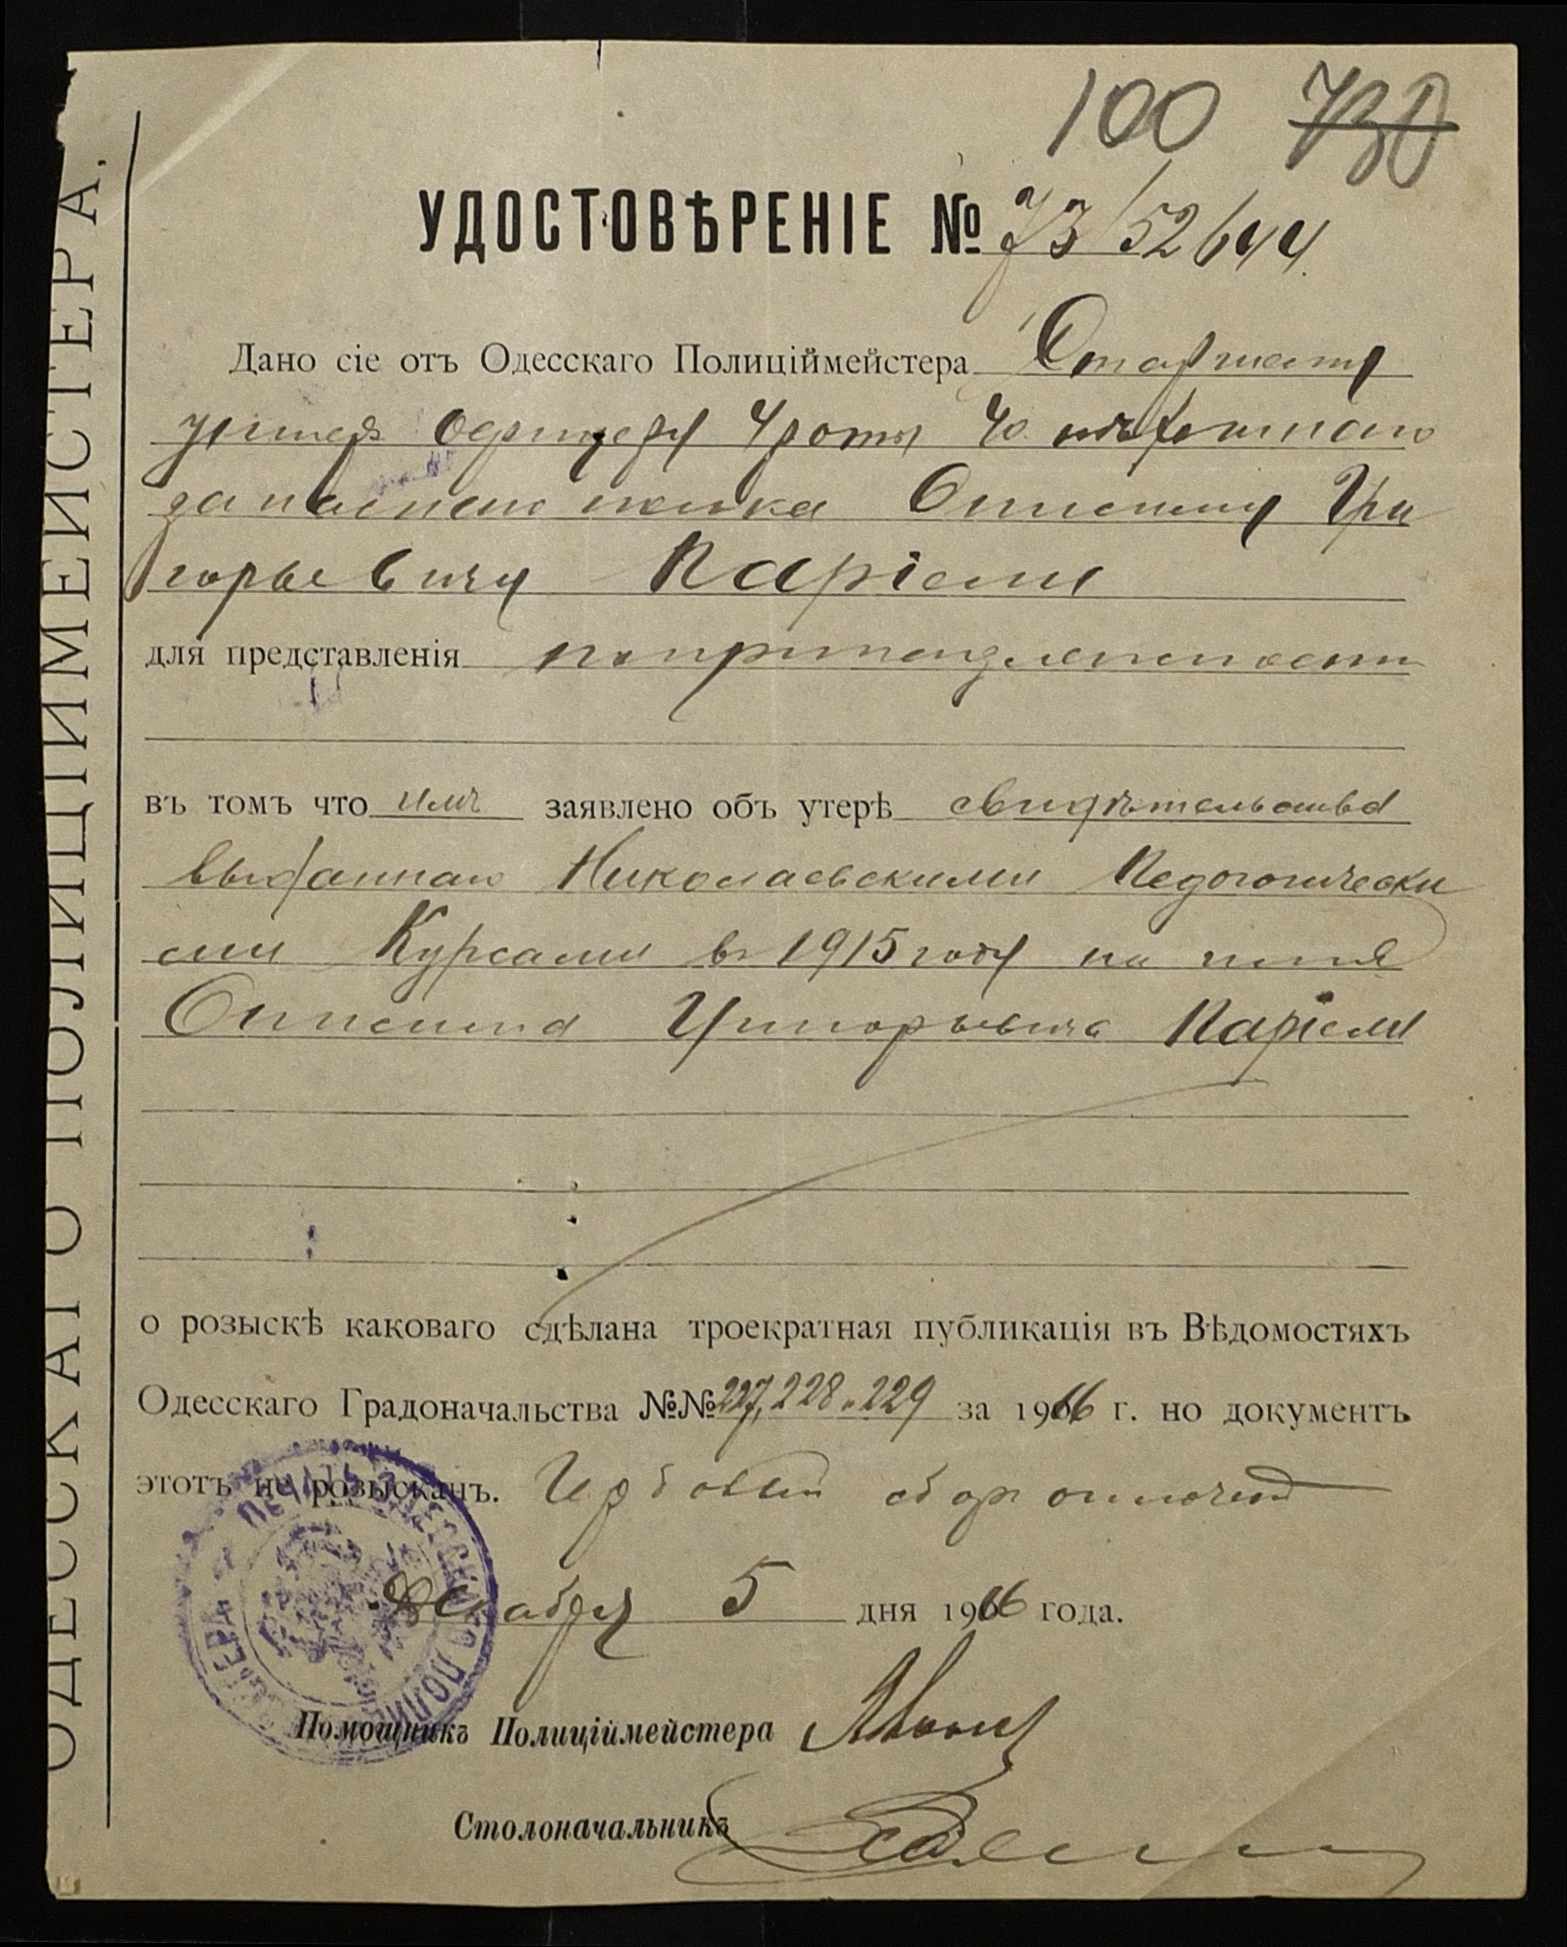 100 730
УДОСТОВѢРЕНІЕ № 73/52644
Дано сіе отъ Одесскаго Полиціймейстера Старшему
унтеръ офицеру 4 роты 40 пѣхотнаго
запаснаго полка Онисиму Гри
горьевичу Паріели
для представленія по принадлежности
въ томъ что имъ заявлено объ утерѣ свидѣтельства
выданнаго Николаевскими Педогогически
ми Курсами въ 1915 году на имя
Онисима Григорьевича Паріели
о розыскѣ каковаго сдѣлана троекратная публикація въ Вѣдомостяхъ
Одесскаго Градоначальства №№ 227, 228 и 229 за 1916 г. но документъ
этотъ не розысканъ. Гербовый сборъ оплоченъ
Декабря 5 дня 1916 года.
Помощникъ Полиціймейстера
Столоначальникъ
ОДЕССКАГО ПОЛИЦІЙМЕЙСТЕРА.
ПЕЧАТЬ ОДЕССКАГО ПОЛИЦІЙМЕЙСТЕРА